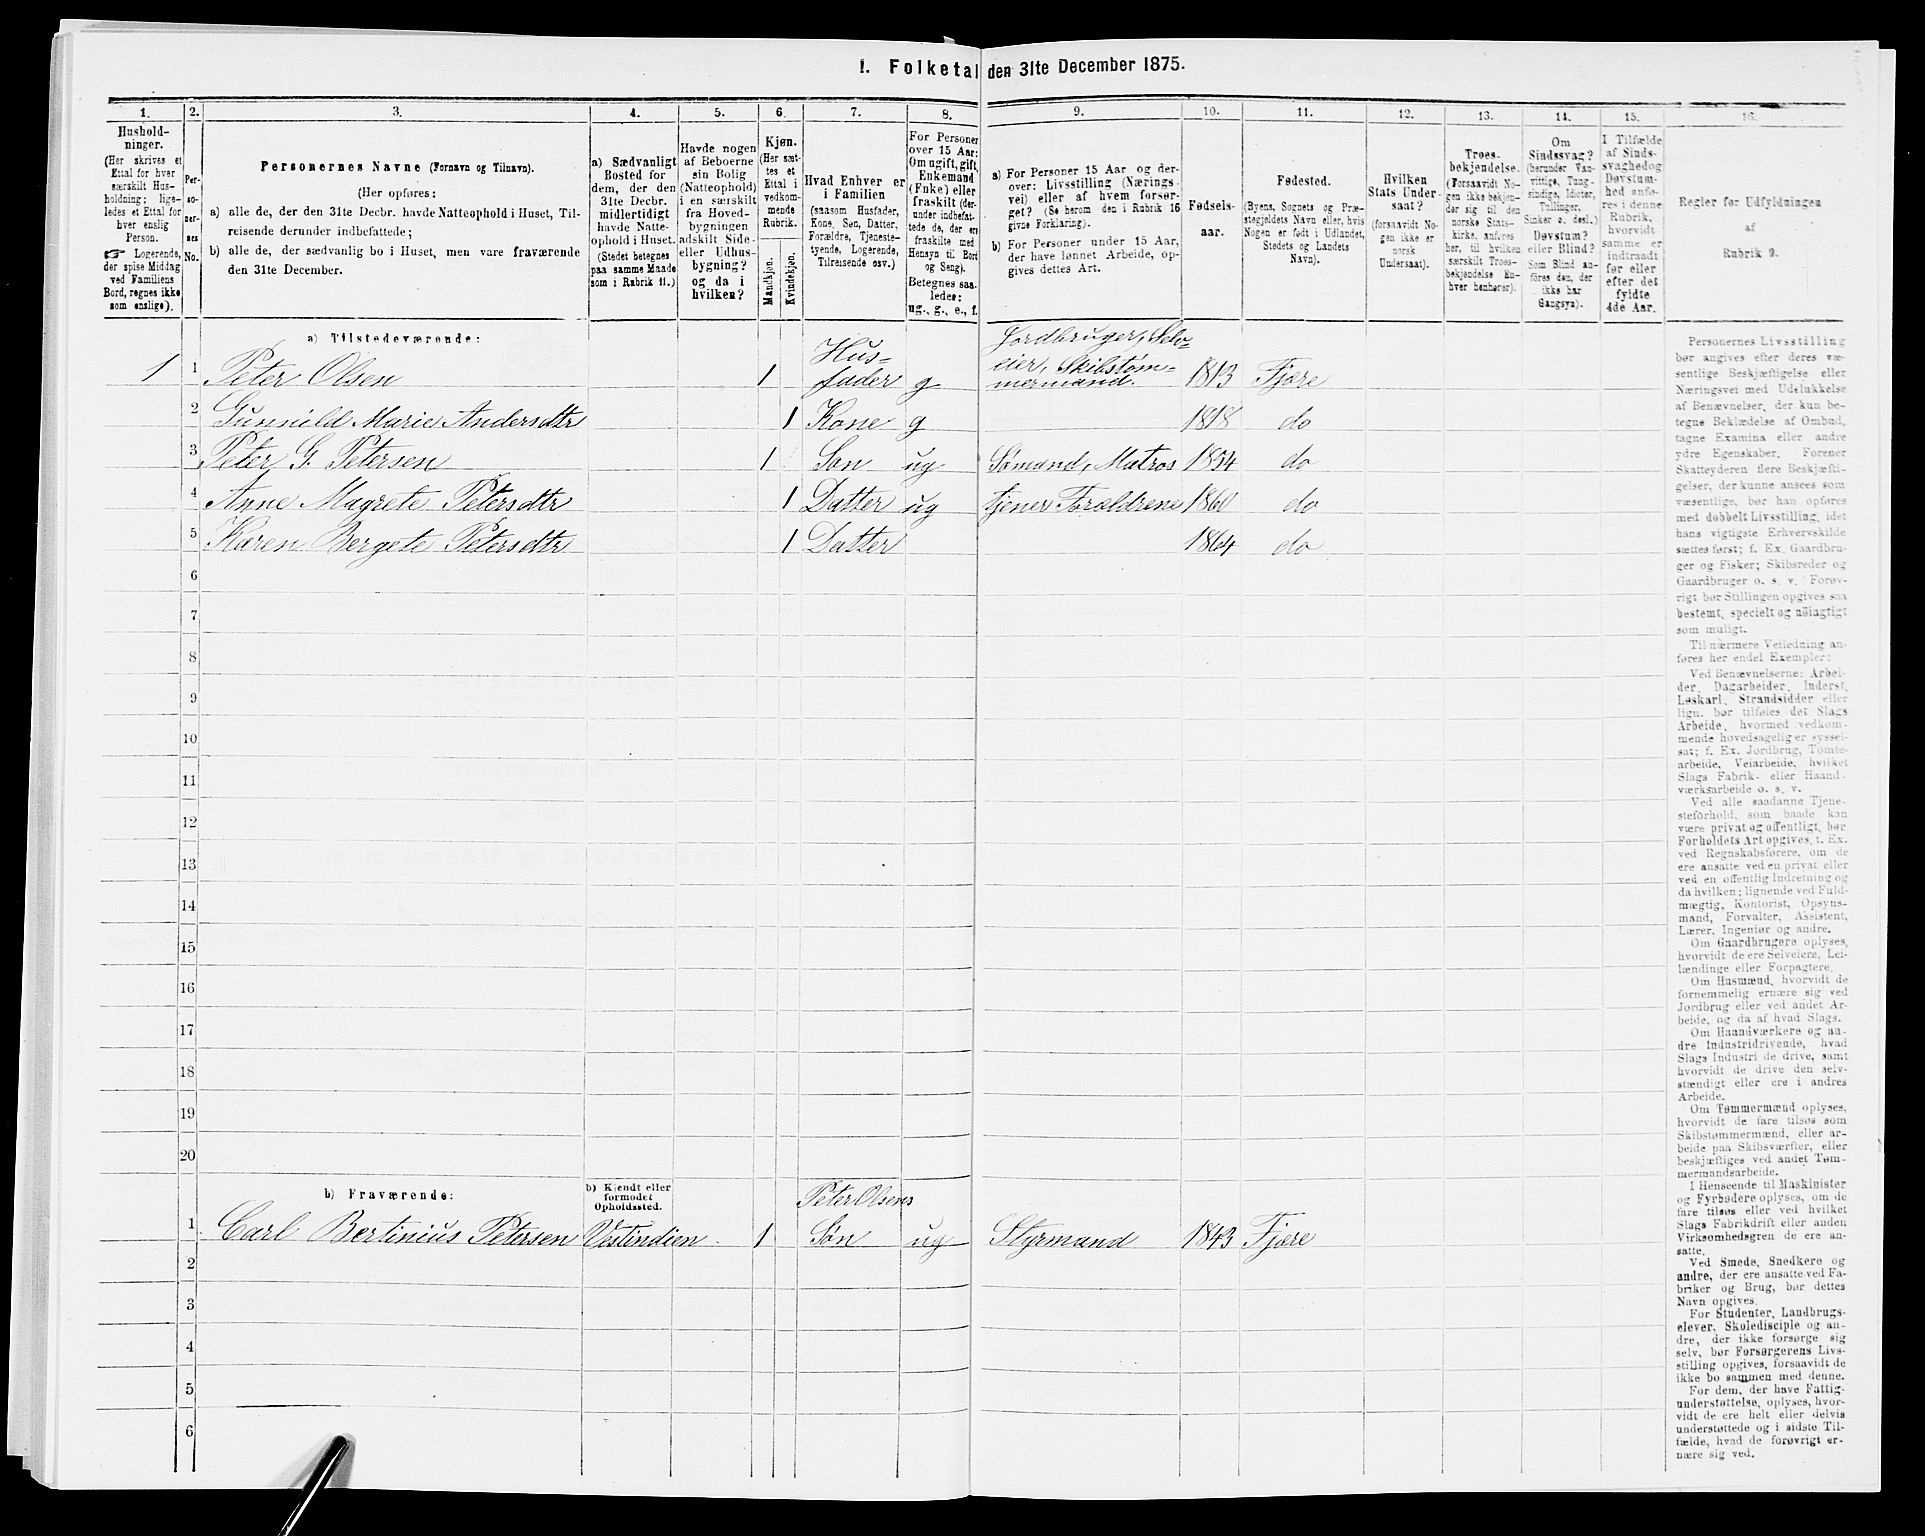 1. Folketal den 31te December 1875.
1.
Hushold-
ninger.
(Her skrives et
Ettal for hver
særskilt Hus-
holdning; lige-
ledes et Ettal for
hver enslig
Person.
☞ Logerende,
der spise Middag
ved Familiens
Bord, regnes ikke
som enslige).
2.
Per-
so-
ner-
nes
No.
3.
Personernes Navne (Fornavn og Tilnavn).
(Her opføres:
a) alle de, der den 31te Decbr. havde Natteophold i Huset, Til-
reisende derunder indbefattede;
b) alle de, der sædvanlig bo i Huset, men vare fraværende
den 31te December.
4.
a) Sædvanligt
Bosted for
dem, der den
31te Decbr.
midlertidigt
havde Natte-
ophold i Huset.
(Stedet betegnes
paa samme Maade
som i Rubrik 11.)
5.
Havde nogen
af Beboerne
sin Bolig
(Natteophold)
i en særskilt
fra Hoved-
bygningen
adskilt Side-
eller Udhus-
bygning?
og da i
hvilken?
6.
Kjøn.
(Her sæt-
tes et
Ettal i
vedkom-
mende
Rubrik.
Mandkjøn.
Kvindekjøn.
7.
Hvad Enhver er
i Familien
(saasom Husfader,
Kone, Søn, Datter,
Forældre, Tjeneste-
tyende, Logerende,
Tilreisende osv.)
8.
For Personer
over 15 Aar:
Om ugift, gift,
Enkemand
(Enke) eller
fraskilt (der-
under indbefat-
tede de, der ere
fraskilte med
Hensyn til Bord
og Seng).
Betegnes saa-
ledes:
ug., g., e., f.
9.
a) For Personer 15 Aar og der-
over: Livsstilling (Nærings-
vei) eller af hvem forsør-
get? (Se herom den i Rubrik 16
givne Forklaring).
b) For Personer under 15 Aar,
der have lønnet Arbeide, op-
gives dettes Art.
10.
Fødsels-
aar.
11.
Fødested.
(Byens, Sognets og Præ-
stegjeldets Navn eller, hvis
Nogen er født i Udlandet,
Stedets og Landets
Navn).
12.
Hvilken
Stats Under-
saat?
(forsaavidt No-
gen ikke er
norsk
Undersaat).
13.
Troes-
bekjendelse.
(Forsaavidt No-
gen ikke bekjen-
der sig til den
norske Stats-
kirke, anføres
her, til hvilken
særskilt Troes-
bekjendelse En-
hver henhører).
14.
Om
Sindssvag?
(herunder Van-
vittige, Tung-
sindige, Idioter,
Tullinger,
Sinker o. desl.)
Døvstum?
eller Blind?
(Som Blind an-
føres den, der
ikke har
Gangsyn).
15.
I Tilfælde
af Sinds-
svaghed og
Døvstum-
hed anfø-
res i denne
Rubrik,
hvorvidt
samme er
indtraadt
før eller
efter det
fyldte
4de Aar.
16.
Regler for Udfyldningen
af
Rubrik 9.
a) Tilstedeværende:
1 1 Peter Olsen 1 Hus-fader g Jordbruger, Selv-eier, Skibstøm-mermand. 1813 Fjære
2 Gunnild Marie Andersdtr 1 Kone g 1818 do
3 Peter G. Petersen 1 Søn ug Sømand, Matros 1854 do
4 Anne Magrete Petersdtr 1 Datter ug tjener Forældrene 1860 do
5 Karen Bergete Petersdtr 1 Datter 1864 do
6
7
8
9
10
11
12
13
14
15
16
17
18
19
20
b) Fraværende:
b) Kjendt eller
formodet
Opholdssted.
1 Carl Bertinius Petersen Vestindien. 1 Peter Olsens Søn ug Styrmand 1843 Fjære
2
3
4
5
6
Personernes Livsstilling
bør angives efter deres væ-
sentlige Beskjæftigelse eller
Næringsvei med Udelukkelse
af Benævnelser, der kun be-
tegne Beklædelse af Ombud,
tagne Examina eller andre
ydre Egenskaber. Forener
Skatteyderen flere Beskjæfti-
gelser, der kunne ansees som
væsentlige, bør han opføres
med dobbelt Livsstilling, idet
hans vigtigste Erhvervskilde
sættes først; f. Ex. Gaardbru-
ger og Fisker; Skibsreder og
Gaardbruger o. s. v. Forøv-
rigt bør Stillingen opgives saa
bestemt, specielt og nøiagtigt
som muligt.
Til nærmere Veiledning an-
føres her endel Exempler:
Ved Benævnelserne: Arbei-
der, Dagarbeider, Inderst,
Løskarl, Strandsidder eller
lign. bør tilføies det Slags
Arbeide, hvormed vedkom-
mende hovedsagelig er syssel-
sat; f. Ex. Jordbrug, Tomte-
arbeide, Veiarbeide, hvilket
Slags Fabrik- eller Haand-
værksarbeide o. s. v.
Ved alle saadanne Tjene-
steforhold, som baade kan
være privat og offentligt, bør
Forholdets Art opgives, f. Ex.
ved Regnskabsførere, om de
ere ansatte ved en privat eller
ved en offentlig Indretning og
da hvilken; lignende ved Fuld-
mægtig, Kontorist, Opsyns-
mand, Forvalter, Assistent,
Lærer, Ingeniør og andre.
Om Gaardbrugere oplyses,
hvorvidt de ere Selveiere, Lei-
lændinge eller Forpagtere.
Om Husmænd, hvorvidt de
fornemmelig ernære sig ved
Jordbrug eller ved andet Ar-
beide, og da af hvad Slags.
Om Haandværkere og an-
dre Industridrivende, hvad
Slags Industri de drive, samt
hvorvidt de drive den selv-
stændigt eller ere i andres
Arbeide.
Om Tømmermænd oplyses,
hvorvidt de fare tilsøs som
Skibstømmermænd, eller ar-
beide paa Skibsværfter, eller
beskjæftiges ved andet Tøm-
mermandsarbeide.
I Henseende til Maskinister
og Fyrbødere oplyses, om de
fare tilsøs eller ved hvilket
Slags Fabrikdrift eller anden
Virksomhedsgren de ere an-
satte.
Ved Smede, Snedkere og
andre, der ere ansatte ved Fa-
briker og Brug, bør dettes
Navn opgives.
For Studenter, Landbrugs-
elever, Skoledisciple og an-
dre, der ikke forsørge sig
selv, bør Forsørgerens Livs-
stilling opgives, forsaavidt de
ikke bo sammen med denne.
For dem, der have Fattig-
understøttelse, oplyses, hvor-
vidt de ere helt eller delvis
understøttede og i sidste Til-
fælde, hvad de forøvrigt er-
nære sig ved.